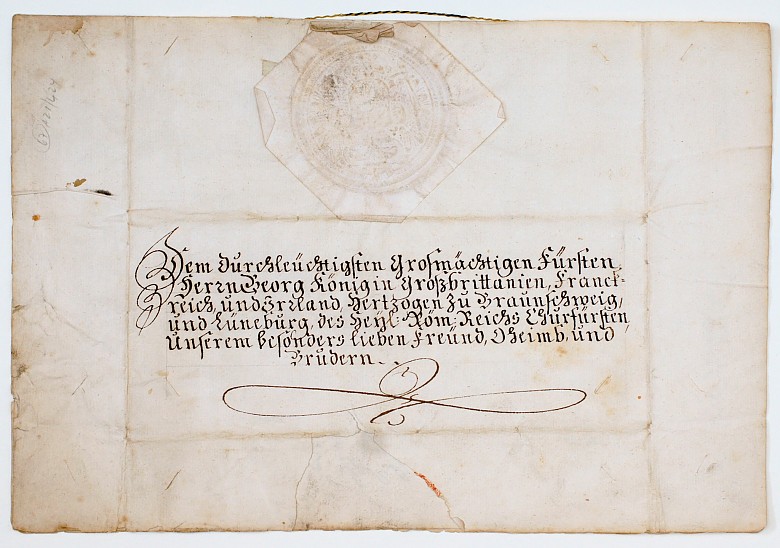 Dem durchleüchtigsten Grosmächtigen Fürsten,
Herrn Georg König in Großbrittanien, Franck-
reich, und Irrland, Hertzogen zu Braunschweig,
und Lüneburg, des Heyl: Röm: Reichs Churfürsten,
Unserem besonders lieben Freünd, Oheimb, und
Brudern.